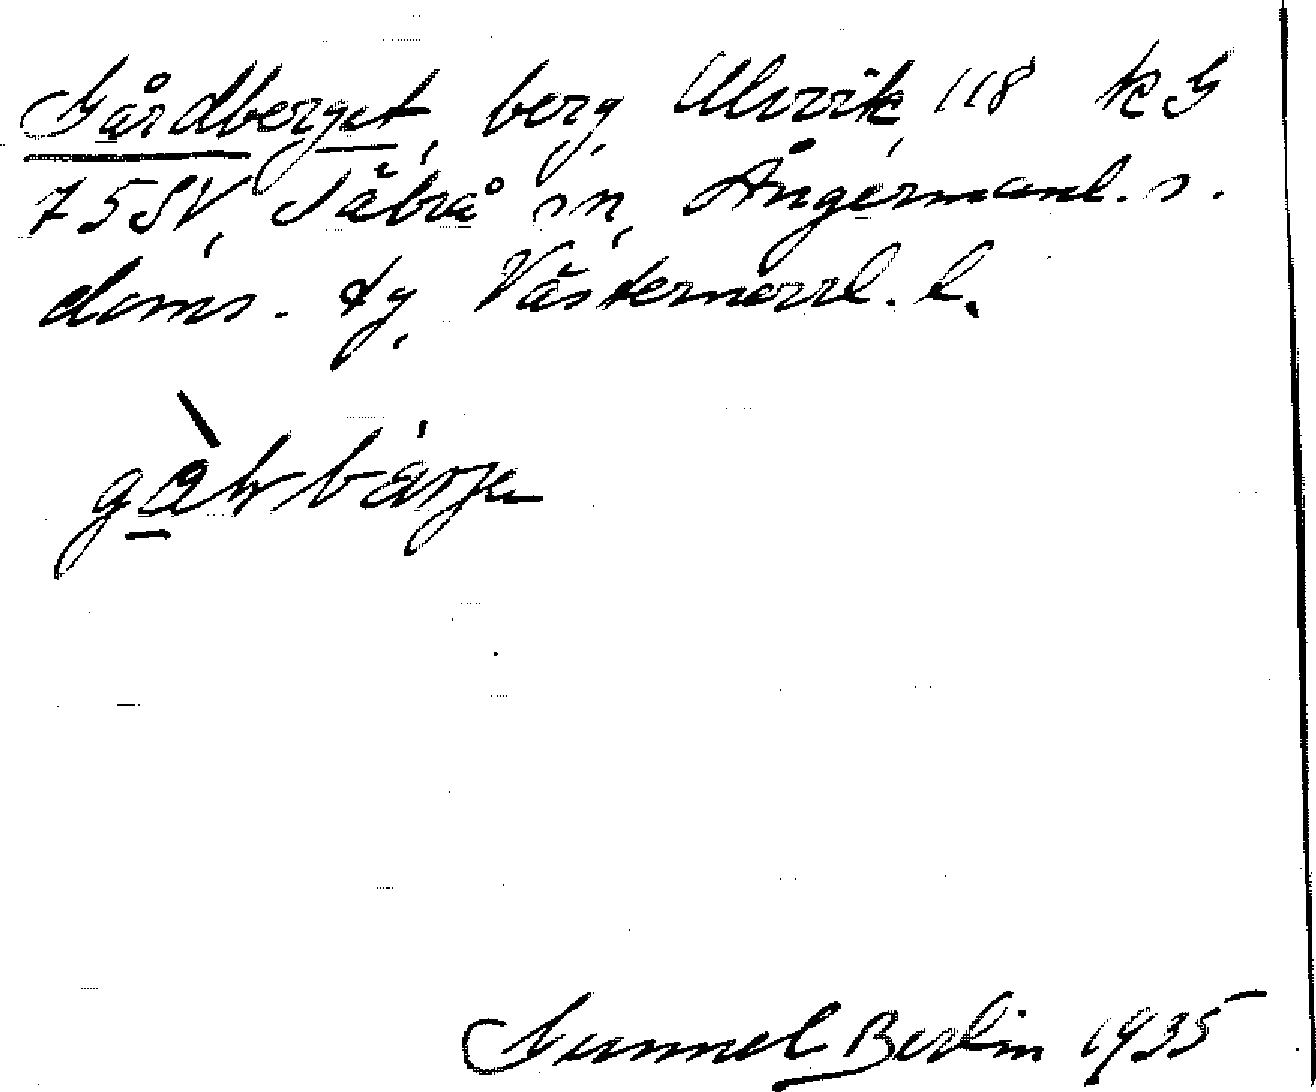 Gårdberget, berg, Ulvvik, 118 k G
75 SV, Säbrå sn, Ångermanl. s.
doms. tg, Västernorrl. l.
Gunnel Berlin 1935